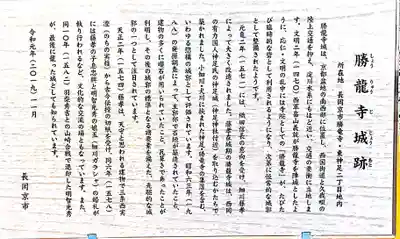 勝龍寺城跡
しょう りゅう じ じょう あと
所在地 長岡京市勝竜寺・東神足二丁目地内
勝龍寺城は、京都盆地の南西部に位置し、西国街道と久我畷の
陸上交通を抑え、淀川水系にもほど近い、交通の要衝に立地しま
す。文明二年(一四七〇)西軍畠山義就が勝龍寺を陣城としたよ
うに、応仁・文明の乱中には寺院としての「勝龍寺」が、たびた
び臨時的な砦として利用されるようになり、次第に恒常的な城郭
として整備されたようです。
元亀二年(一五七一)には、織田信長の意向を受け、細川藤孝
によって大きく改造されました。藤孝在城期の勝龍寺城は、西岡
の有力国人神足氏の神足城(神足神社付近)を取り込むかたちで
築かれました。小畑川と犬川に挟まれた神足・勝竜寺の集落を含む、
いわゆる惣構の城郭として評価されています。昭和六三年(一九
八八)の発掘調査によって、主郭部で石垣が築造されていたこと、
建物の多くに礎石が用いられていたこと、瓦葺きであったことが
判明し、その後の城郭の標準となる諸要素を備えた、先駆的な城
郭の一つとして注目されています。
天正二年(一五七四)藤孝は、天守と思われる建物で三条西実
澄(のちの実枝)から古今伝授の切紙を受け、同六年(一五七八)
には藤孝の子息忠興と明智光秀の娘玉(細川ガラシャ)の婚礼が
執り行われるなど、文化的な交流の場ともなっています。また、
同一〇年(一五八二)羽柴秀吉との山崎合戦で敗即した明智光秀
が、最後に籠った城としても知られています。
令和元年(二〇一九)一一月
長岡京市